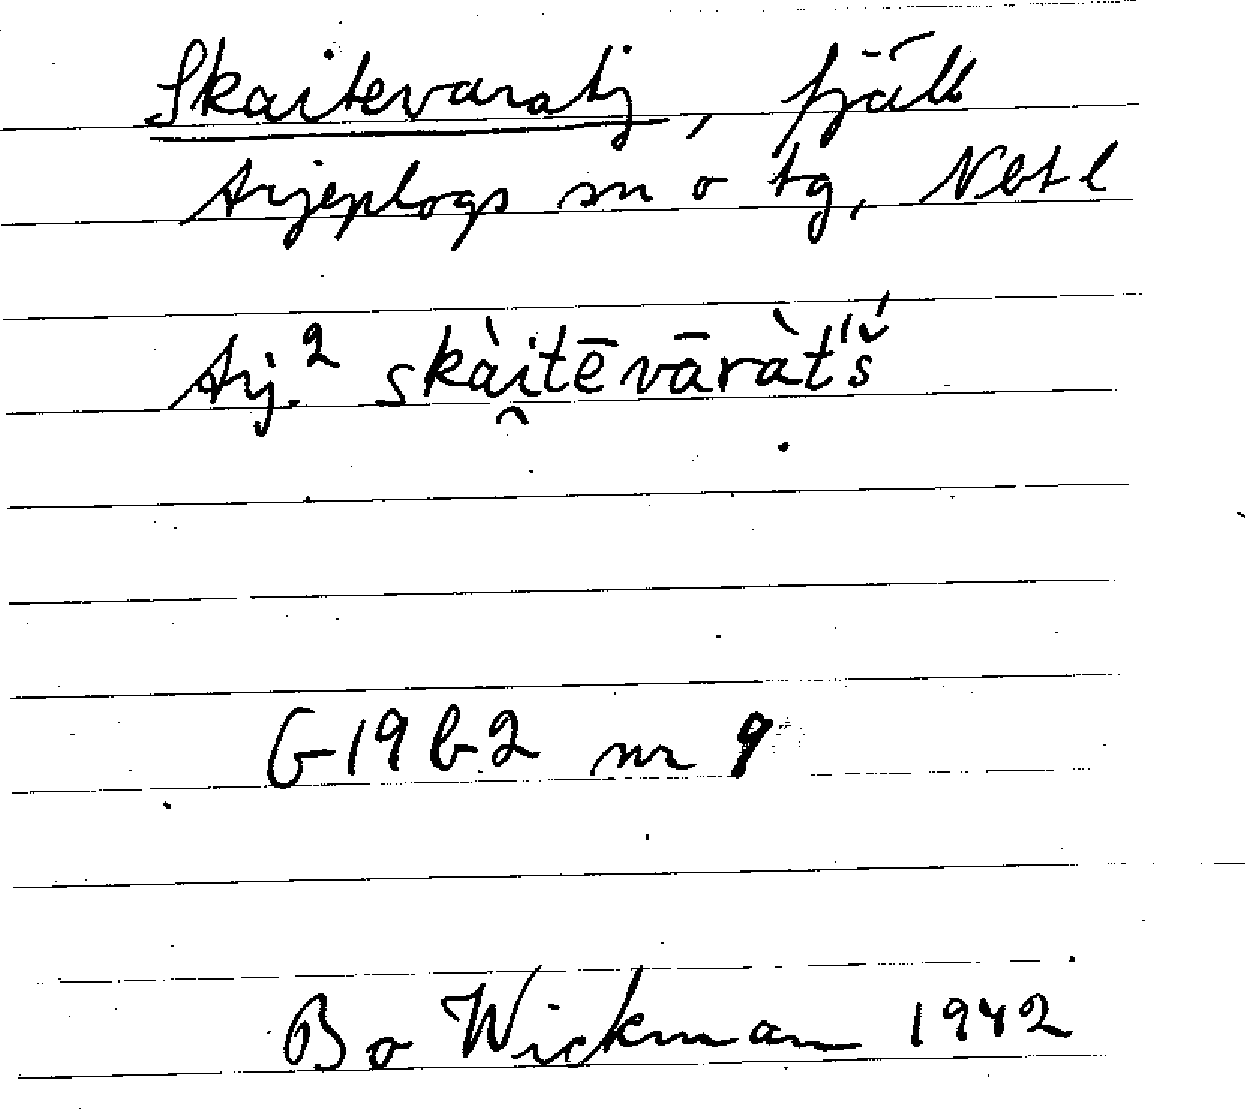 Skaitevaratj, fjäll
Arjeplogs sn o tg, Nbtl
Arj.² skài̯tēvāràt́š́
G 19 b 2 nr 9
Bo Wickman 1942